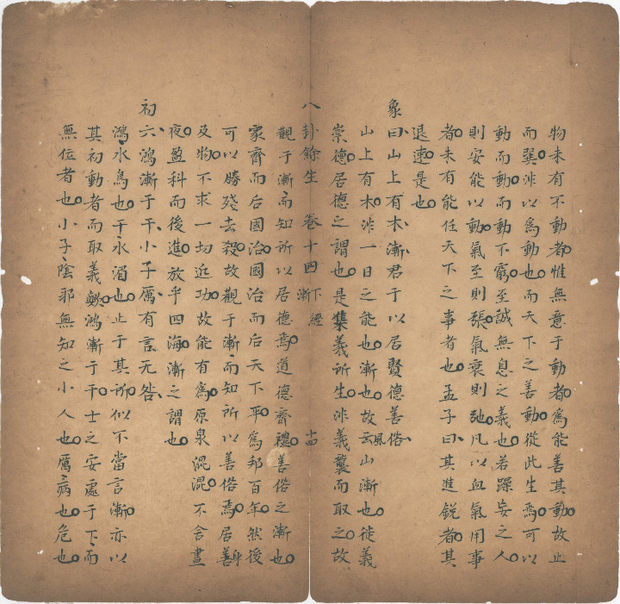 物未有不動者惟無意于動者爲能善其動故止
而巽非以爲動也而天下之善動從此生焉可以
動而動而動不窮至誠無息之義也若躁妄之人
則安能以動氣至則張氣衰則弛凡以血氣用事
者未有能任天下之事者也孟子曰其進銳者其
退速是也
象曰山上有木漸君子以居賢德善俗
山上有木非一日之能也漸也故云風山漸也徙義
崇德居德之謂也是集義所生非義襲而取之故
八卦餘生 卷十四 下經 漸 十四
觀于漸而知所以居德焉道德齊禮善俗之漸也
家齊而后國治國治而后天下平爲邦百年然後
可以勝殘去殺故觀于漸而知所以善俗焉居善身
及物不求一切近功故能有爲原泉混混不舍晝
夜盈科而後進放乎四海漸之謂也
初六鴻漸于干小子厲有言无咎
鴻水鳥也干水湄也止于其所似不當言漸亦以
其初動者而取義歟鴻漸于干士之安處于下而
無位者也小子陰邪無知之小人也厲病也危也